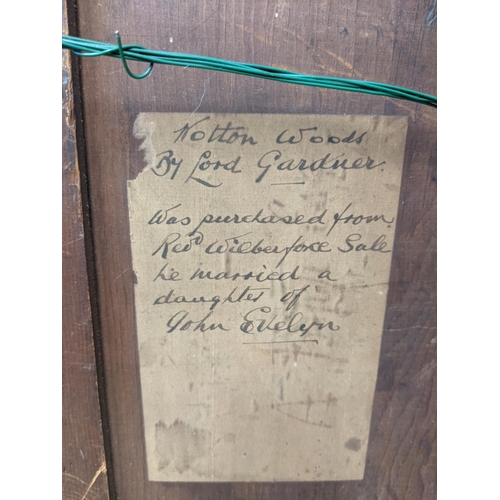 Notton Woods
By Lord Gardner.
Was purchased from
Revd Wilberforce Sale
he married a
daughter of
John Evelyn